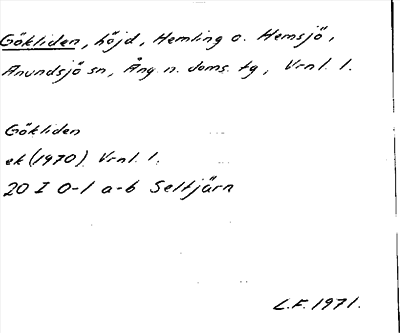 Gökliden, höjd, Hemling o. Hemsjö,
Anundsjö sn, Ång. n. doms. tg, Vrnl. l.
Gökliden
ek (1970) Vrnl. l.
20 I 0-1 a-b Seltjärn
L.F. 1971.